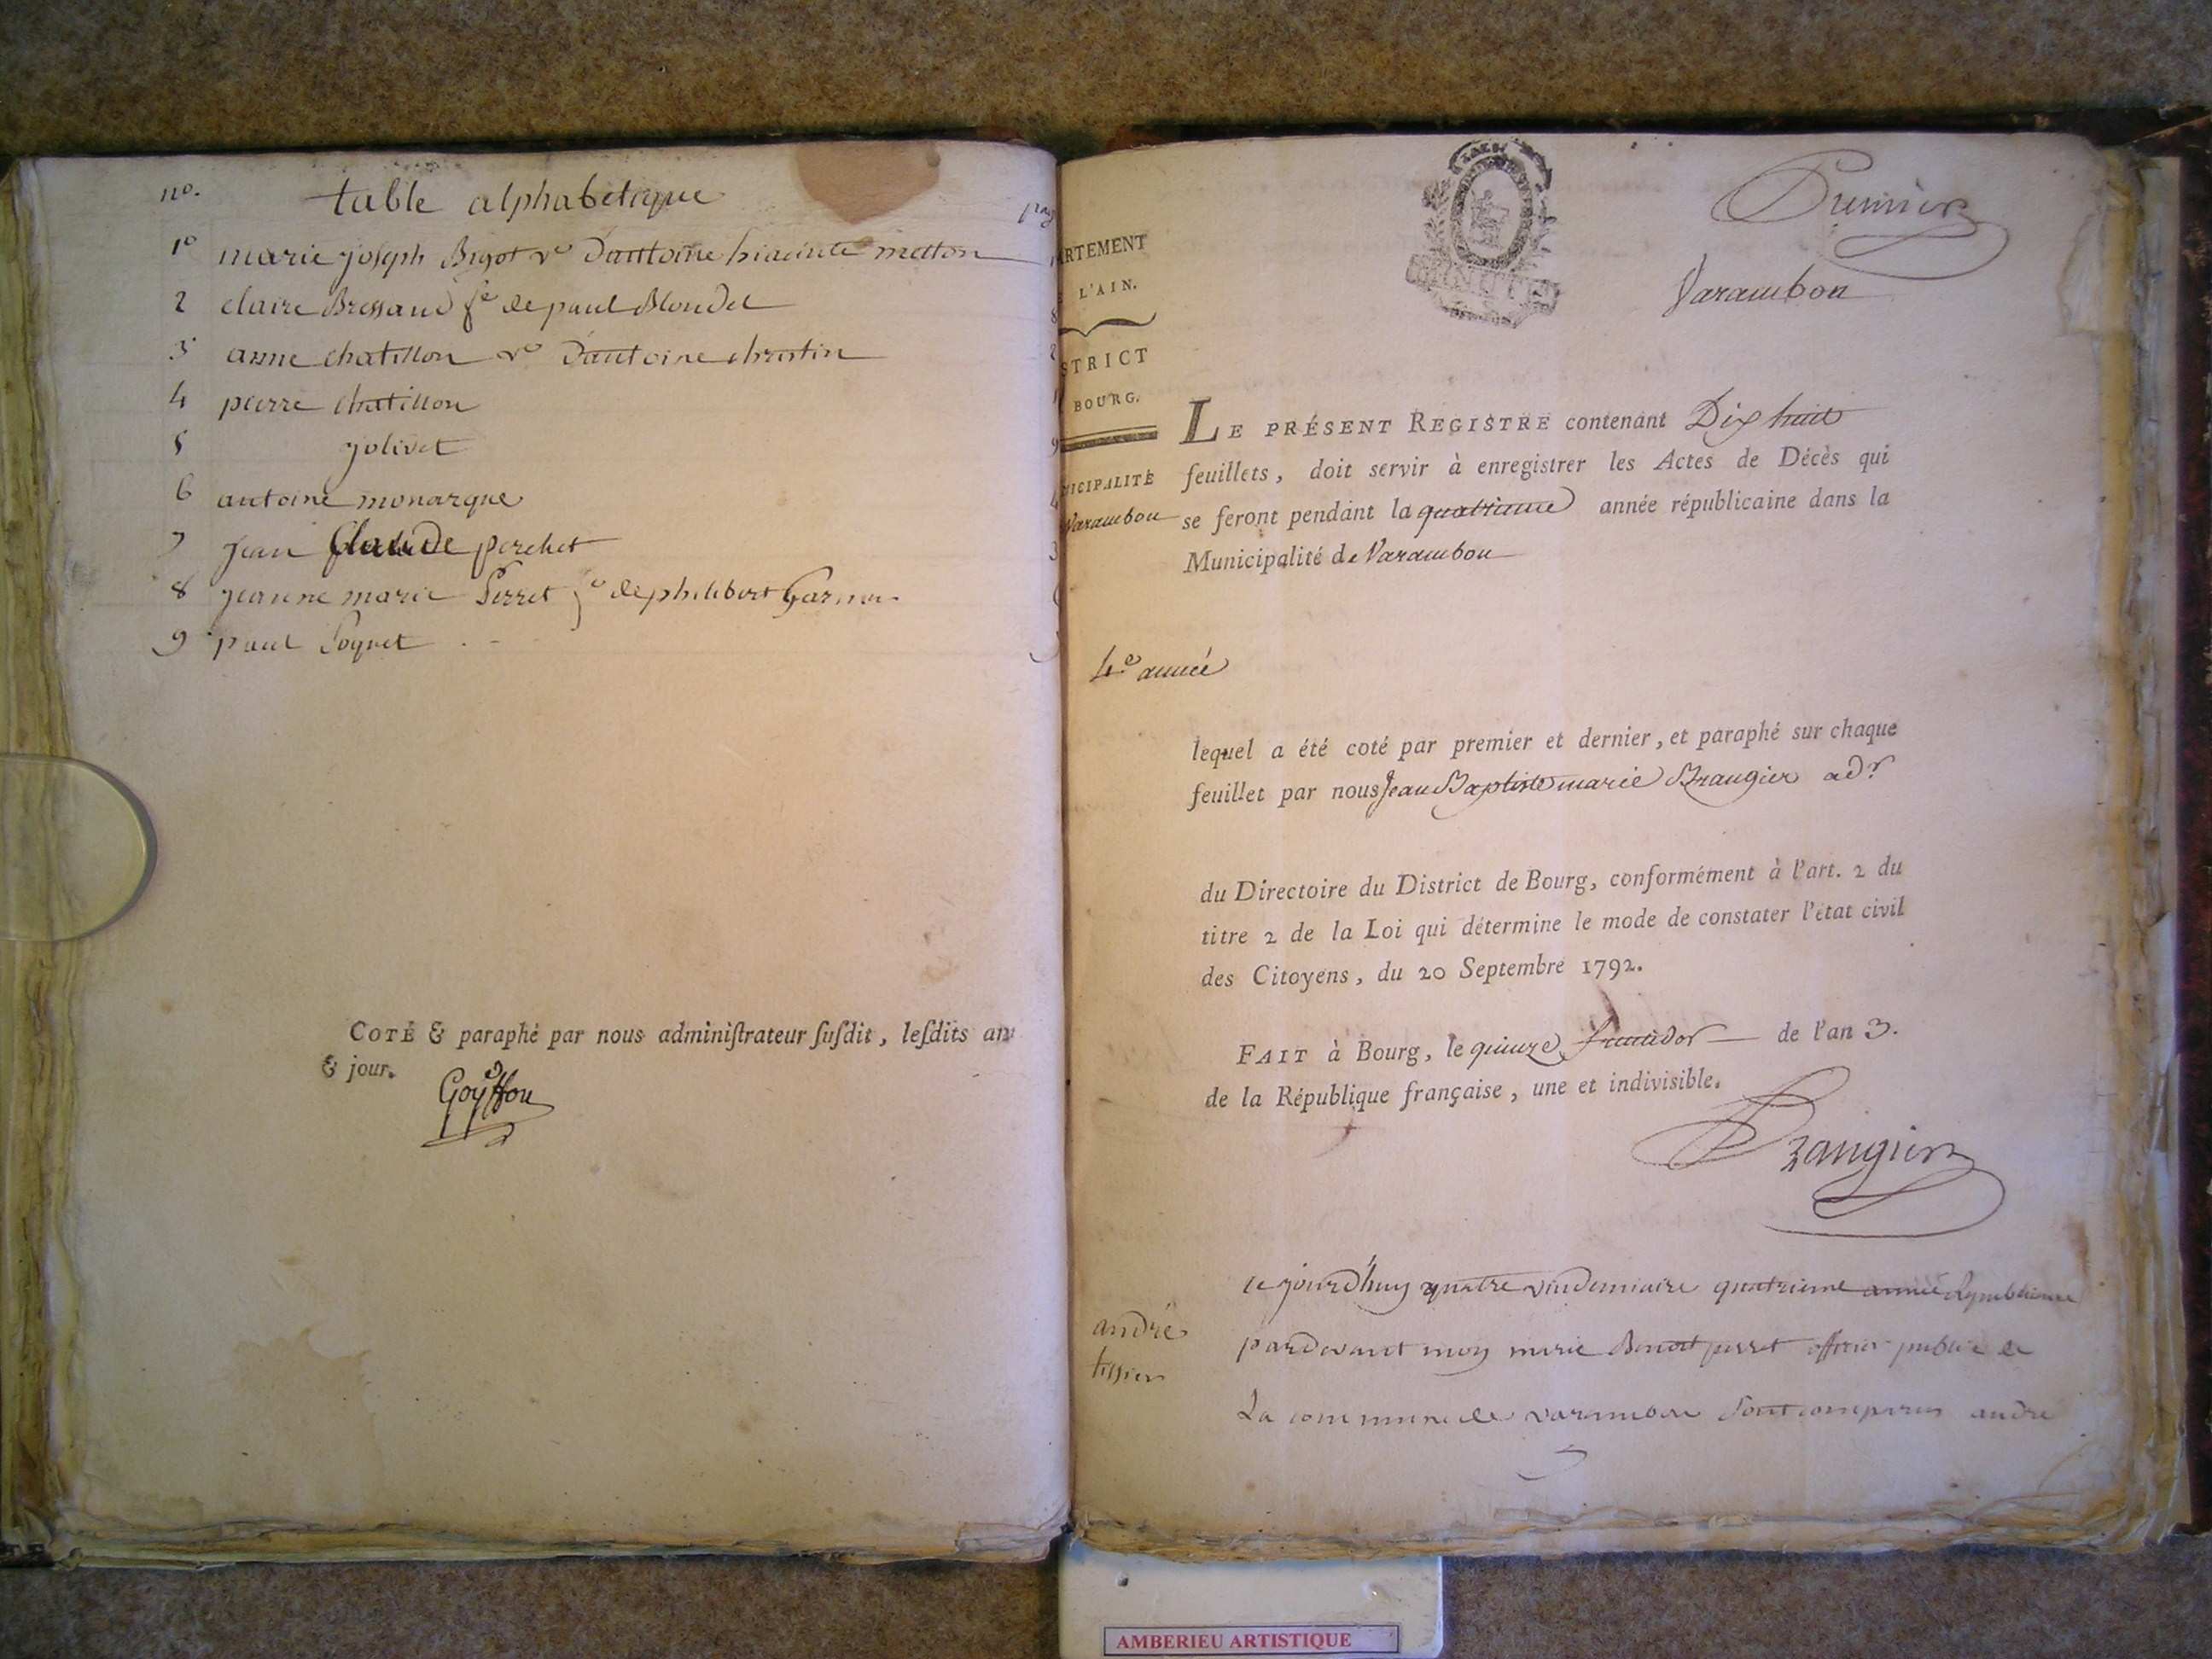 no. table alphabetique pag
1o marie joseph Bigot ve d'antoine hiacinte metton
2 claire Bressand fe de paul Blondel 8
3 anne chatillon ve d'antoine christin 2
4 pierre chatillon
5 jolivet 9
6 antoine monarque 4
7 jean Claude perchet 3
8 jeanne marie Perret fe de philibert
9 paul Poquet
COTÉ & paraphé par nous adminiſtrateur ſuſdit, leſdits an
& jour.
Goyffon
ARTEMENT
L'AIN.
STRICT
BOURG.
NICIPALITÉ
Varambon
Premier
Varambon
LE PRÉSENT REGISTRE contenant Dix huit
feuillets, doit servir à enregistrer les Actes de Décès qui
se feront pendant la quatrieme année républicaine dans la
Municipalité de Varambon
4e année
lequel a été coté par premier et dernier, et paraphé sur chaque
feuillet par nous Jean Baptiste marie Brangier adr
du Directoire du District de Bourg, conformément à l'art. 2 du
titre 2 de la Loi qui détermine le mode de constater l'état civil
des Citoyens, du 20 Septembre 1792.
FAIT à Bourg, le quinze fructidor de l'an 3.
de la République française, une et indivisible.
Brangier
andré
tissier
ce jourd'huy quatre vindemiaire quatrieme année
pardevant moy marie Benoit perret officier public de
La commune de varambon sont comparus andre
AMBERIEU ARTISTIQUE